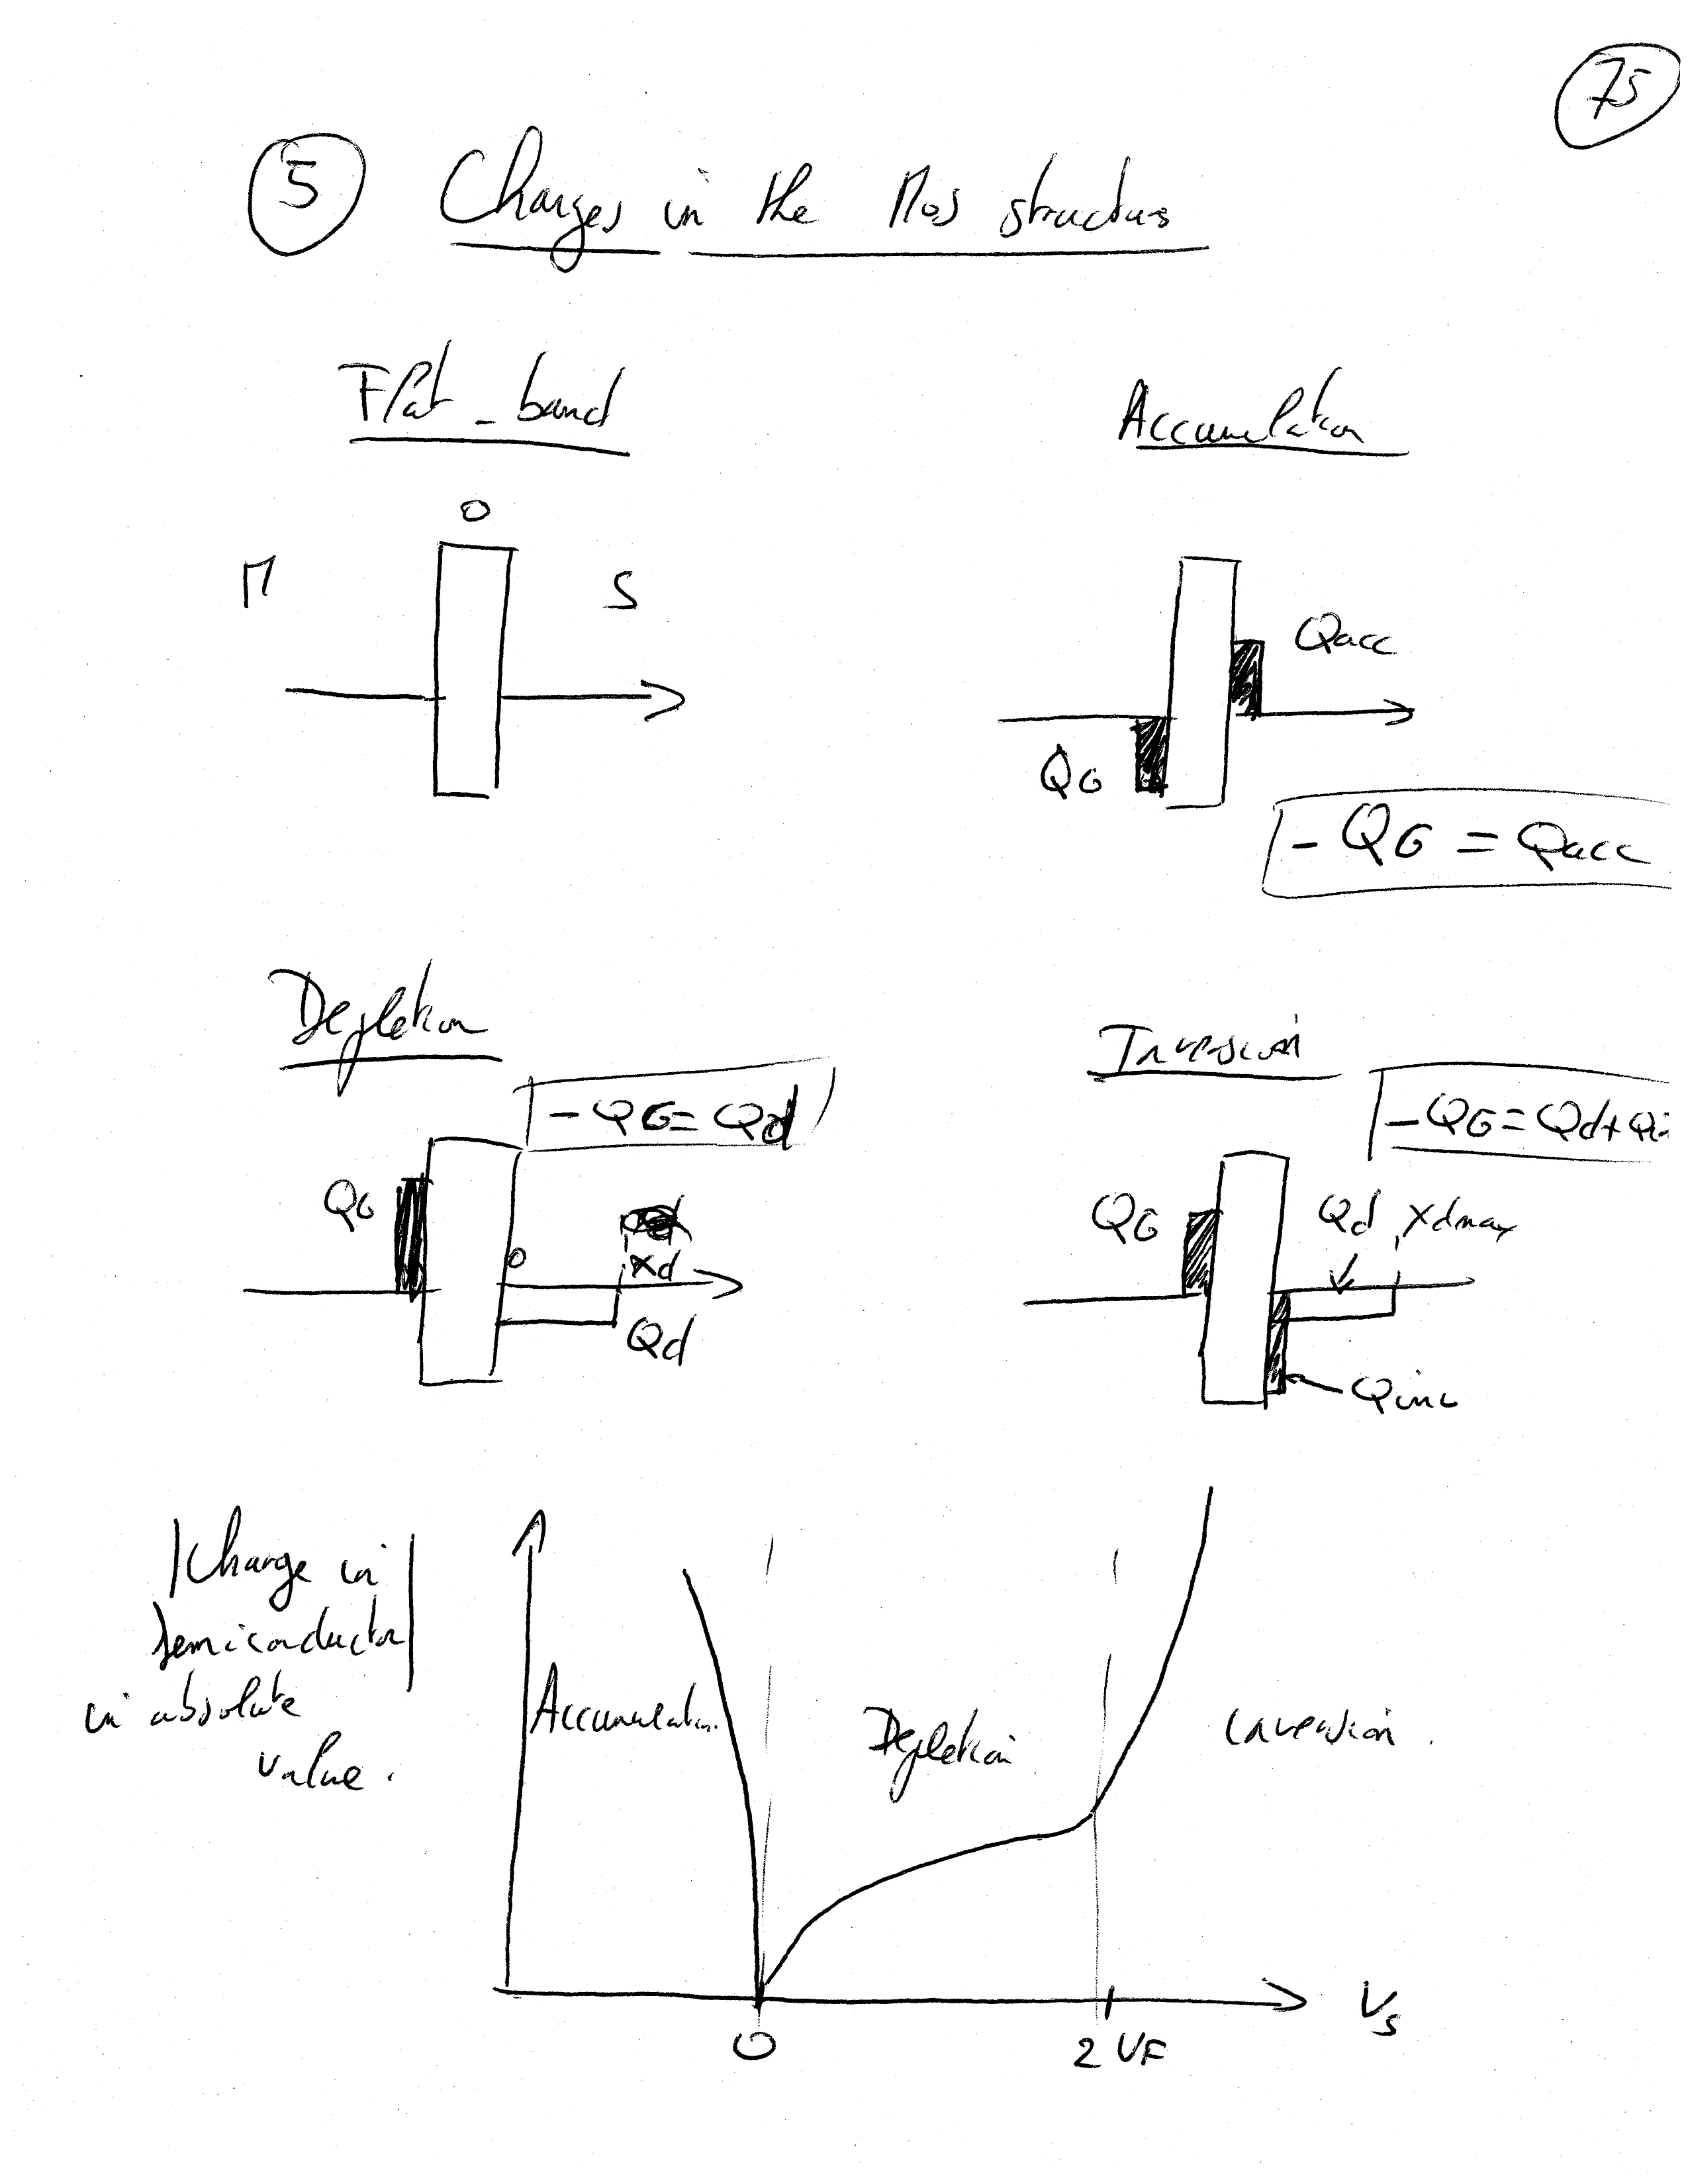 75
5 Charges in the MOS structure
Flat-band
Accumulation
O
M
S
Qacc
QG
-QG = Qacc
Depletion
Inversion
-QG = Qd
-QG = Qd + Qi
QG
0
xd
Qd
QG
Qd
xdmax
Qinv
|Charge in
semiconductor|
in absolute
value.
Accumulation
Depletion
inversion.
0
2 VF
Vs